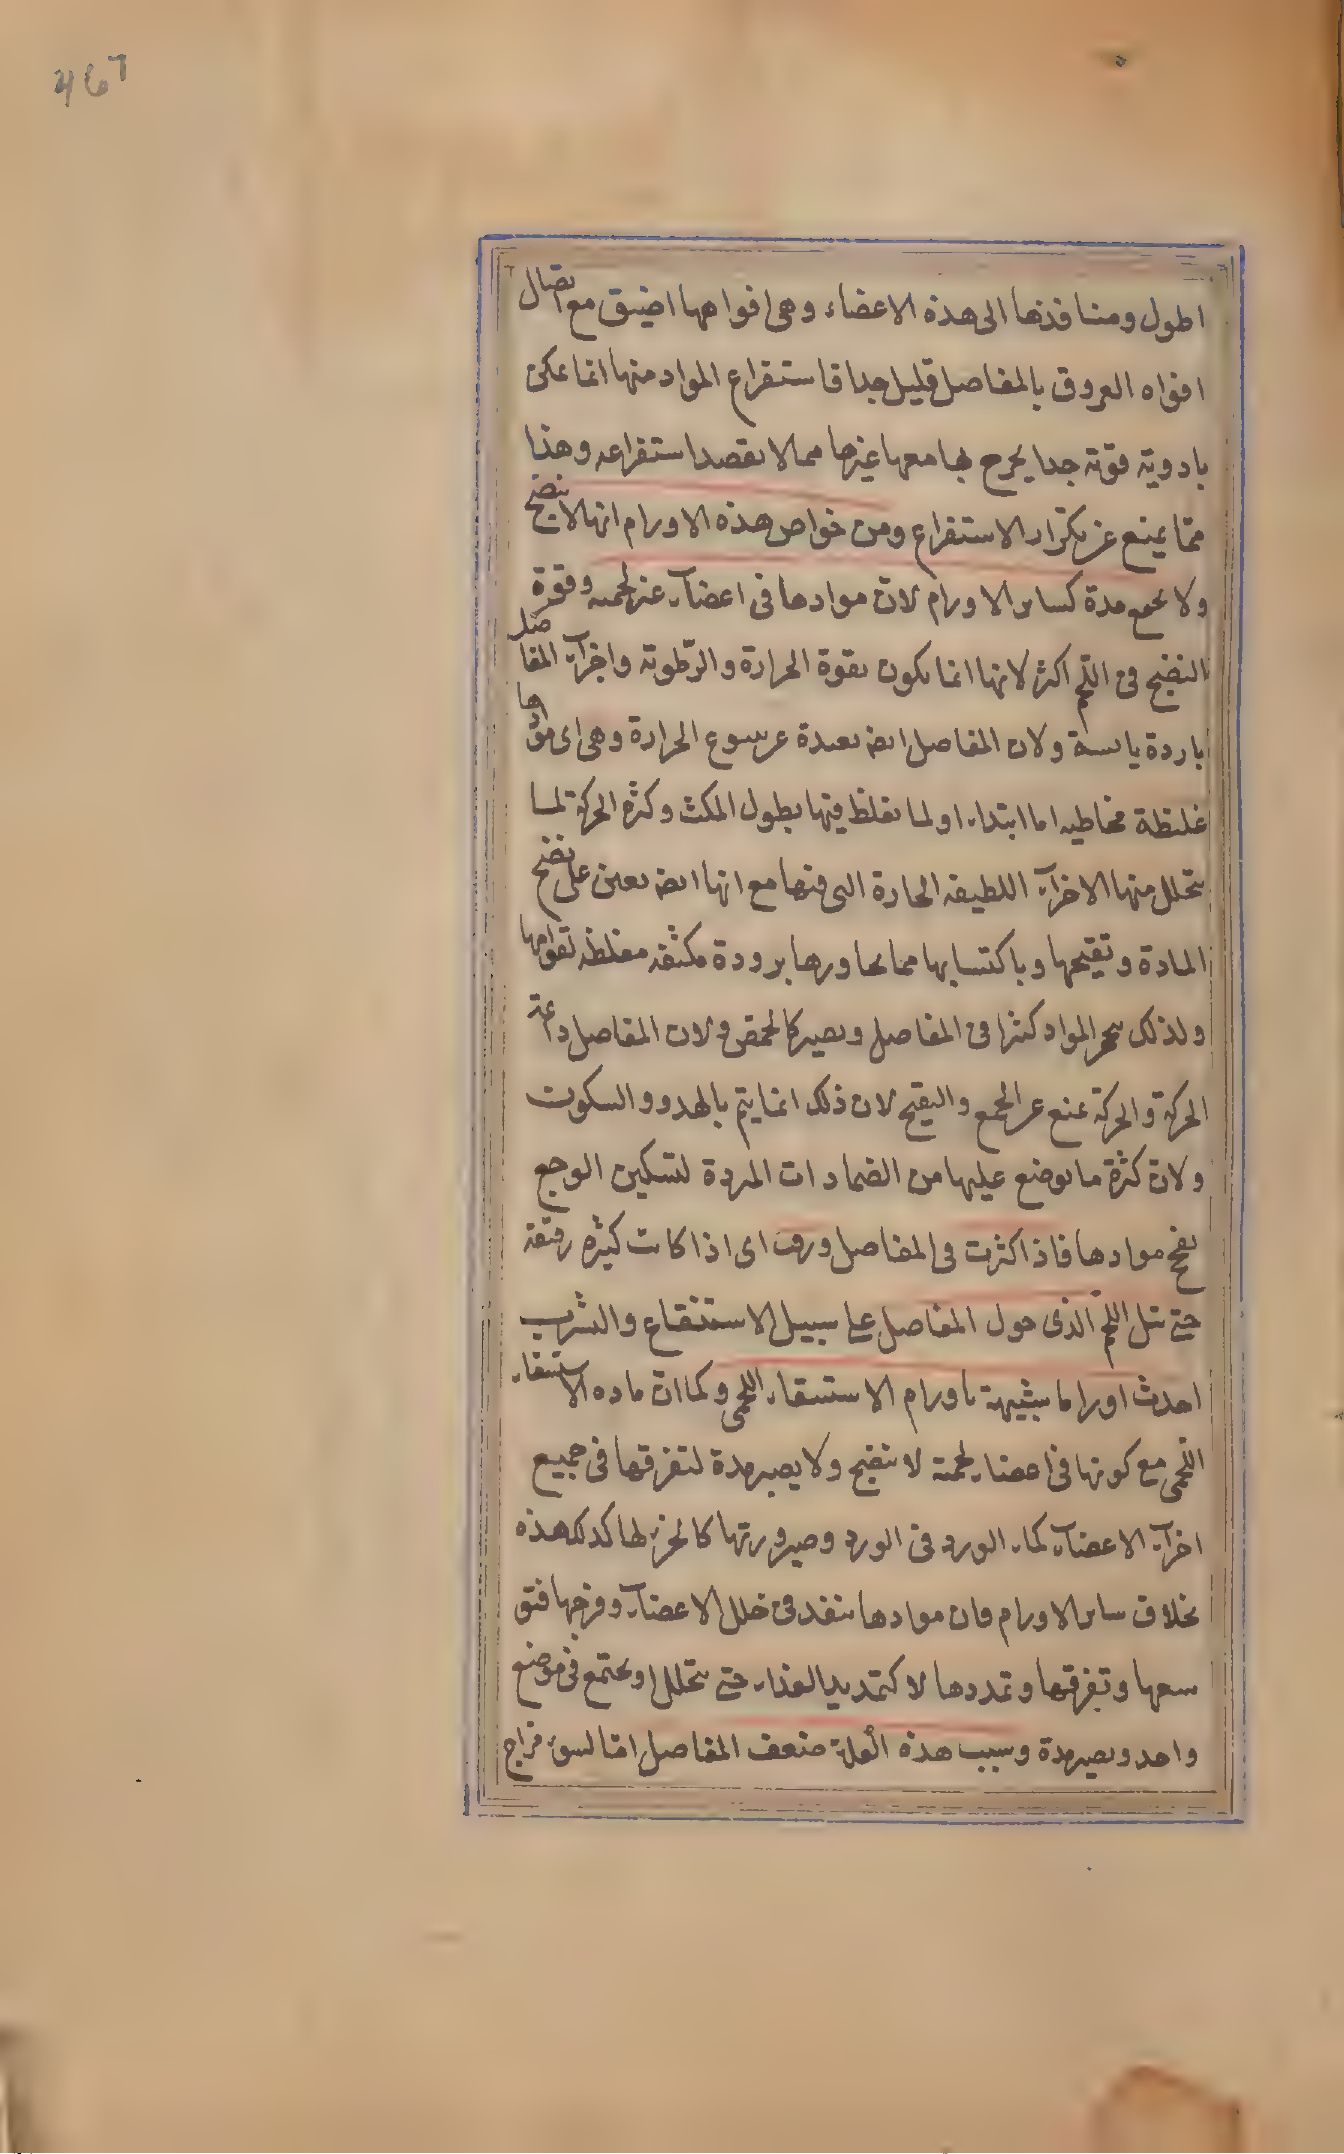 467
اطول ومنافذها الى هذه الاعضاء وهى افواهها اضيق مع اتصال
افواه العروق بالمفاصل قليل جدا فاستفراغ المواد منها انما يمكن
بادوية قوية جدا يخرج بها معها غيرها مما لا يقصد استفراغه وهذا
مما يمنع عن تكرار الاستفراغ ومن خواص هذه الاورام انها لا ينضج
ولا يجمع مدة كساير الاورام لان موادها فى اعضاء غير لحمية وقوة
النضج فى اللحم اكثر لانها انما يكون بقوة الحرارة والرطوبة واجزاء المفاصل
باردة يابسة ولان المفاصل ايضا بعيدة عن ينبوع الحرارة وهى اى موادها
غليظة مخاطية اما ابتداء او لما يغلظ فيها بطول المكث وكثرة الحركة لما
يتحلل منها الاجزاء اللطيفة الحارة التى فيها مع انها ايضا يعين على نضج
المادة وتقيحها وباكتسابها مما يجاورها برودة مكثفة مغلظة لقوامها
ولذلك يتحجر المواد كثيرا فى المفاصل ويصير كالجص ولان المفاصل دائمة
الحركة والحركة يمنع عن الجمع والتقيح لان ذلك انما يتم بالهدو والسكون
ولان كثرة ما يوضع عليها من الضمادات المبردة لتسكين الوجع
يفج موادها فاذا كثرت فى المفاصل ورقت اى اذا كانت كثيرة رقيقة
حتى تبل اللحم الذى حول المفاصل على سبيل الاستنقاع والتشرب
احدث اوراما شبيهة باورام الاستسقاء اللحمى وكما ان مادة الاستسقاء
اللحمى مع كونها فى اعضاء لحمية لا ينضج ولا يصير مدة لتفرقها فى جميع
اجزاء الاعضاء كماء الورد فى الورد وصيرورتها كالجزء لها كذلك هذه
بخلاف ساير الاورام فان موادها ينفذ فى خلل الاعضاء وفرجها فتو
سعها وتفرقها وتمددها لا كتمديد الغذاء حتى يتحلل او يجتمع فى موضع
واحد ويصير مدة وسبب هذه العلة ضعف المفاصل اما لسوء مزاج